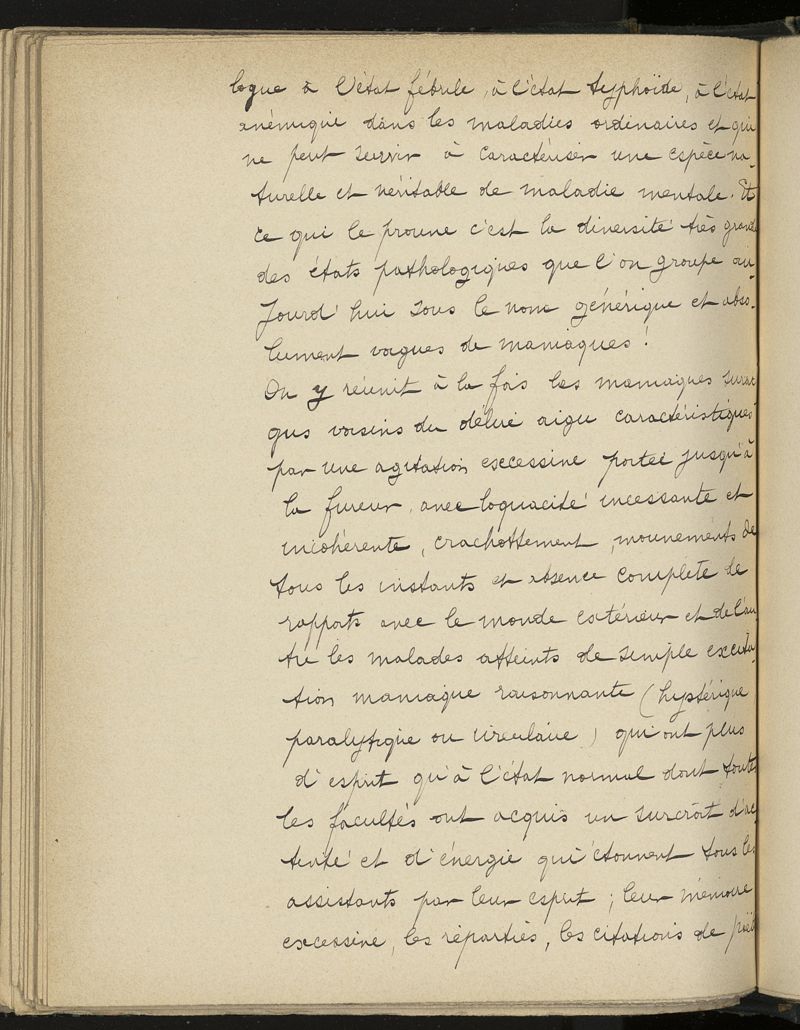 logue à l'état fébrile, à l'état typhoïde, à l'état
anémique dans les maladies ordinaires et qui
ne peut servir à caractériser une espèce na-
turelle et véritable de maladie mentale. Et
ce qui le prouve c'est la diversité très grande
des états pathologiques que l'on groupe au-
jourd'hui sous le nom générique et abso-
lument vagues de maniaques!
On y réunit à la fois les maniaques surai
gus voisins du délire aigu caractéristiques
par une agitation excessive portée jusqu'à
la fureur, avec loquacité incessante et
incohérente, crachottement, mouvements de
tous les instants et absence complète de
rapports avec le monde extérieur et de l'au
tre les malades atteints de simple excita-
tion maniaque raisonnante (hystérique
paralytique ou circulaire) qui ont plus
d'esprit qu'à l'état normal dont toutes
les facultés ont acquis un surcroît d'ac
tivité et d'énergie qui étonnent tous les
assistants par leur esprit; leur mémoire
excessive, les réparties, les citations de poët